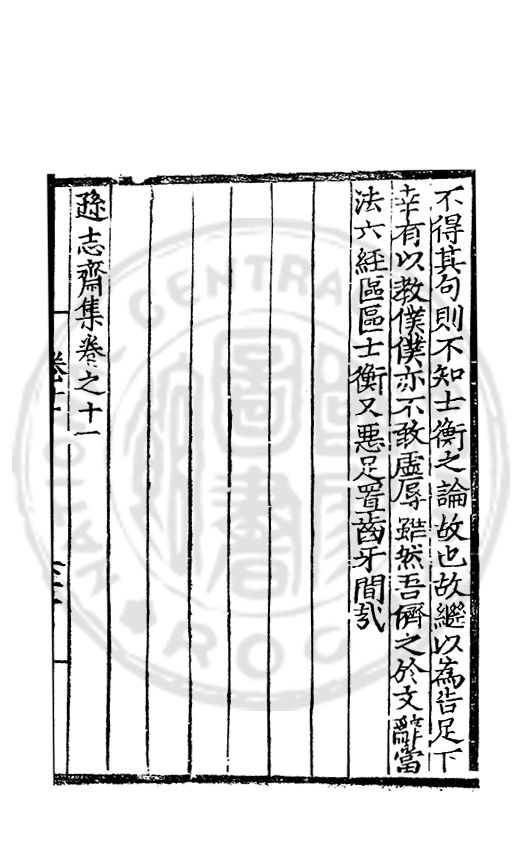 不得其句則不知士衡之論故也故繼以為告足下
幸有以教僕僕亦不敢虛辱雖然吾儕之於文辭當
法六經區區士衡又惡足置齒牙間哉
遜志齋集卷之十一
卷十一
CENTRAL
圖書
ROC